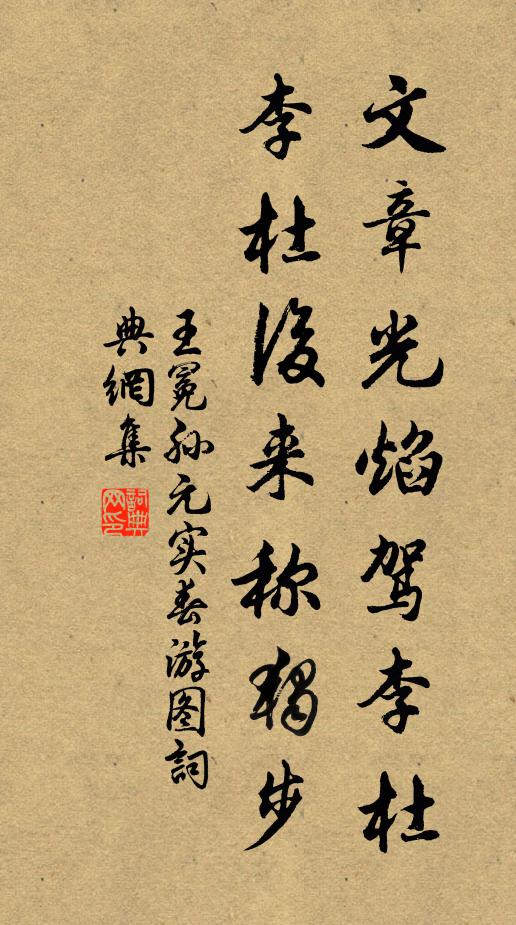 文章光焰驾李杜
李杜後来称獨步
王冕孙元实春游图詞
典網集
詞典網印